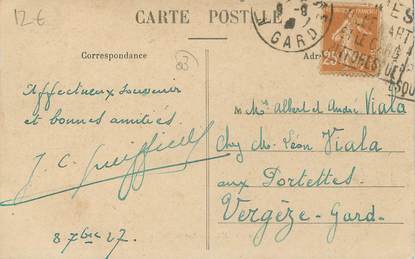 12 €
CARTE POSTALE
Correspondance
Adr
83
GARD
25
Affectueux souvenir
et bonnes amitiés.
J. C.
8 7bre 27.
M. Albert et André Viala
chez M. Léon Viala
aux Portettes
Vergèze - Gard -